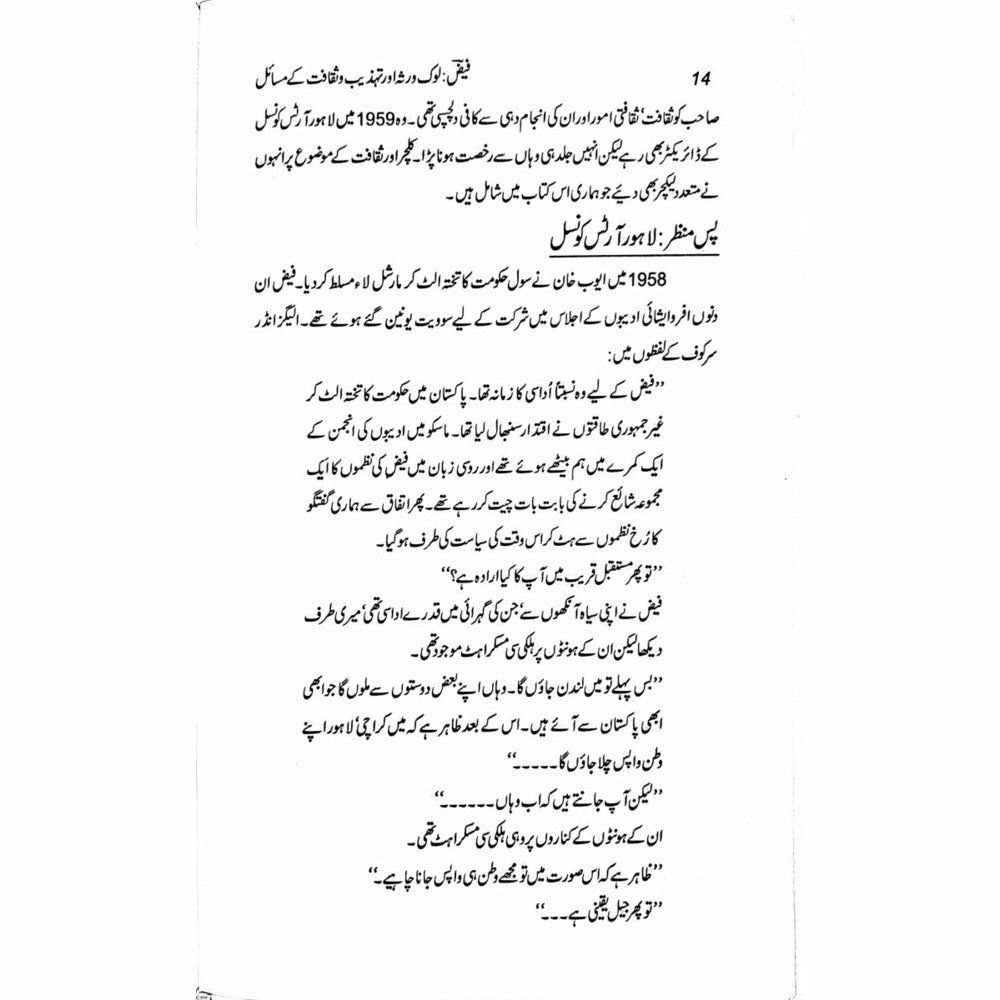 14
فیضؔ: لوک ورثہ اور تہذیب و ثقافت کے مسائل
صاحب کو ثقافت‘ ثقافتی امور اور ان کی انجام دہی سے کافی دلچسپی تھی۔ وہ 1959 میں لاہور آرٹس کونسل
کے ڈائریکٹر بھی رہے لیکن انہیں جلد ہی وہاں سے رخصت ہونا پڑا۔ کلچر اور ثقافت کے موضوع پر انہوں
نے متعدد لیکچر بھی دیئے جو ہماری اس کتاب میں شامل ہیں۔
پس منظر: لاہور آرٹس کونسل
1958 میں ایوب خان نے سول حکومت کا تختہ الٹ کر مارشل لاء مسلط کر دیا۔ فیض ان
دنوں افرو ایشائی ادیبوں کے اجلاس میں شرکت کے لیے سوویت یونین گئے ہوئے تھے۔ الیگزانڈر
سرکوف کے لفظوں میں:
’’فیض کے لیے وہ نسبتاً اُداسی کا زمانہ تھا۔ پاکستان میں حکومت کا تختہ الٹ کر
غیر جمہوری طاقتوں نے اقتدار سنبھال لیا تھا۔ ماسکو میں ادیبوں کی انجمن کے
ایک کمرے میں ہم بیٹھے ہوئے تھے اور روسی زبان میں فیض کی نظموں کا ایک
مجموعہ شائع کرنے کی بابت بات چیت کر رہے تھے۔ پھر اتفاق سے ہماری گفتگو
کا رُخ نظموں سے ہٹ کر اس وقت کی سیاست کی طرف ہو گیا۔
’’تو پھر مستقبل قریب میں آپ کا کیا ارادہ ہے؟‘‘
فیض نے اپنی سیاہ آنکھوں سے‘ جن کی گہرائی میں قدرے اداسی تھی‘ میری طرف
دیکھا لیکن ان کے ہونٹوں پر ہلکی سی مسکراہٹ موجود تھی۔
’’بس پہلے تو میں لندن جاؤں گا۔ وہاں اپنے بعض دوستوں سے ملوں گا جو ابھی
ابھی پاکستان سے آئے ہیں۔ اس کے بعد ظاہر ہے کہ میں کراچی‘ لاہور اپنے
وطن واپس چلا جاؤں گا۔۔۔۔۔‘‘
’’لیکن آپ جانتے ہیں کہ اب وہاں۔۔۔۔۔۔‘‘
ان کے ہونٹوں کے کناروں پر وہی ہلکی سی مسکراہٹ تھی۔
’’ظاہر ہے کہ اس صورت میں تو مجھے وطن ہی واپس جانا چاہیے۔‘‘
’’تو پھر جیل یقینی ہے۔۔۔‘‘